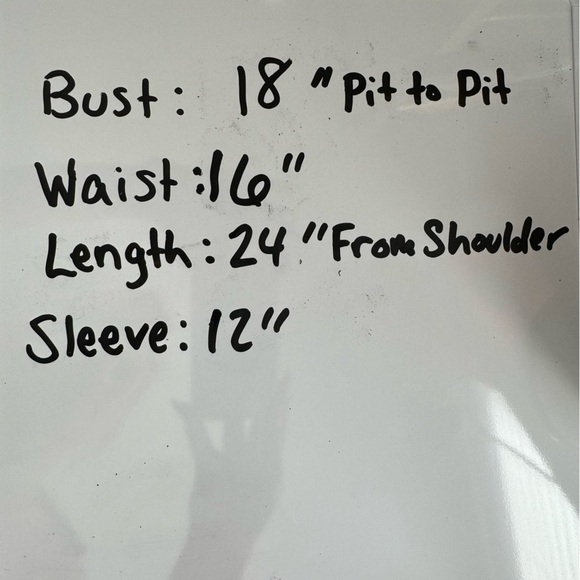 Bust: 18" Pit to Pit
Waist:16"
Length: 24" From Shoulder
Sleeve: 12"